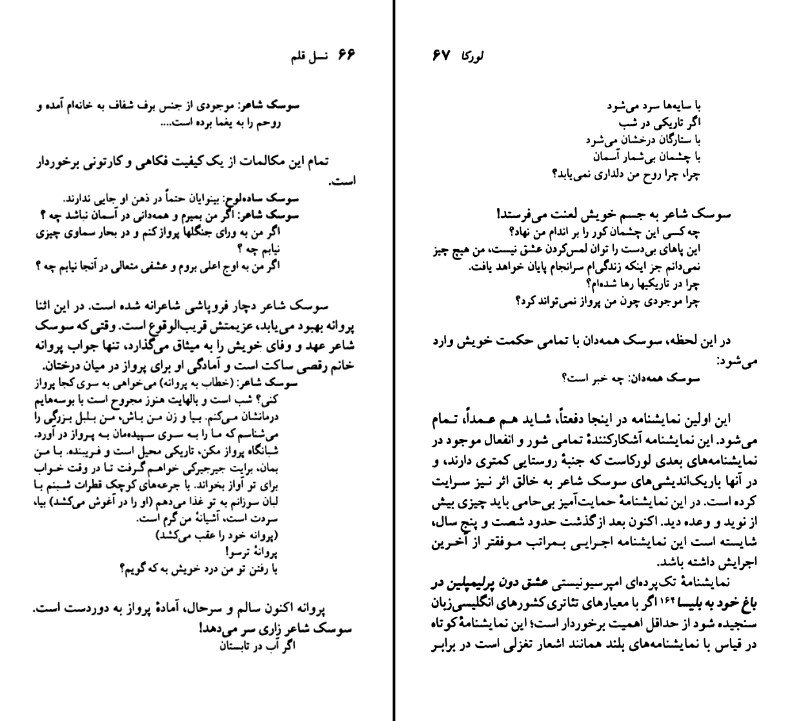 ۶۶ نسل قلم
سوسک شاعر: موجودی از جنس برف شفاف به خانه‌ام آمده و
روحم را به یغما برده است....
تمام این مکالمات از یک کیفیت فکاهی و کارتونی برخوردار
است.
سوسک ساده‌لوح: بینوایان حتماً در ذهن او جایی ندارند.
سوسک شاعر: اگر من بمیرم و همه‌دانی در آسمان نباشد چه ؟
اگر من به ورای جنگلها پرواز کنم و در بحار سماوی چیزی
نیابم چه ؟
اگر من به اوج اعلی بروم و عشفی متعالی در آنجا نیابم چه ؟
سوسک شاعر دچار فروپاشی شاعرانه شده است. در این اثنا
پروانه بهبود می‌یابد، عزیمتش قریب‌الوقوع است. وقتی‌که سوسک
شاعر عهد و وفای خویش را به میثاق می‌گذارد، تنها جواب پروانه
خانم رقصی ساکت است و آمادگی او برای پرواز در میان درختان.
سوسک شاعر: (خطاب به پروانه) می‌خواهی به سوی کجا پرواز
کنی؟ شب است و بالهایت هنوز مجروح است با بوسه‌هایم
درمانشان می‌کنم. بیا و زن من باش، من بلبل بزرگی را
می‌شناسم که ما را به سوی سپیده‌مان به پرواز در آورد.
شبانگاه پرواز مکن، تاریکی محیل است و فریبنده. با من
بمان، برایت جیرجیرکی خواهم گرفت تا در وقت خواب
برای تو آواز بخواند. با جرعه‌های کوچک قطرات شبنم با
لبان سوزانم به تو غذا می‌دهم (او را در آغوش می‌کشد) بیا،
سردت است، آشیانهٔ من گرم است.
(پروانه خود را عقب می‌کشد)
پروانهٔ ترسو!
با رفتن تو من درد خویش به که گویم؟
پروانه اکنون سالم و سرحال، آمادهٔ پرواز به دوردست است.
سوسک شاعر زاری سر می‌دهد!
اگر آب در تابستان
لورکا ۶۷
با سایه‌ها سرد می‌شود
اگر تاریکی در شب
با ستارگان درخشان می‌شود
با چشمان بی‌شمار آسمان
چرا، چرا روح من دلداری نمی‌یابد؟
سوسک شاعر به جسم خویش لعنت می‌فرستد!
چه کسی این چشمان کور را بر اندام من نهاد؟
این پاهای بی‌دست را توان لمس‌کردن عشق نیست، من هیچ چیز
نمی‌دانم جز اینکه زندگی‌ام سرانجام پایان خواهد یافت.
چرا در تاریکیها رها شده‌ام؟
چرا موجودی چون من پرواز نمی‌تواند کرد؟
در این لحظه، سوسک همه‌دان با تمامی حکمت خویش وارد
می‌شود:
سوسک همه‌دان: چه خبر است؟
این اولین نمایشنامه در اینجا دفعتاً، شاید هم عمداً، تمام
می‌شود. این نمایشنامه آشکارکنندهٔ تمامی شور و انفعال موجود در
نمایشنامه‌های بعدی لورکاست که جنبهٔ روستایی کمتری دارند، و
در آنها باریک‌اندیشی‌های سوسک شاعر به خالق اثر نیز سرایت
کرده است. در این نمایشنامهٔ حمایت‌آمیز بی‌حامی باید چیزی بیش
از نوید و وعده دید. اکنون بعد ازگذشت حدود شصت و پنج سال،
شایسته است این نمایشنامه اجرایی بمراتب موفقتر از آخرین
اجرایش داشته باشد.
نمایشنامهٔ تک‌پرده‌ای امپرسیونیستی عشق دون پرلیمپلین در
باغ خود به بلیسا۱۶۴ اگر با معیارهای تئاتری کشورهای انگلیسی‌زبان
سنجیده شود از حداقل اهمیت برخوردار است؛ این نمایشنامهٔ کوتاه
در قیاس با نمایشنامه‌های بلند همانند اشعار تغزلی است در برابر